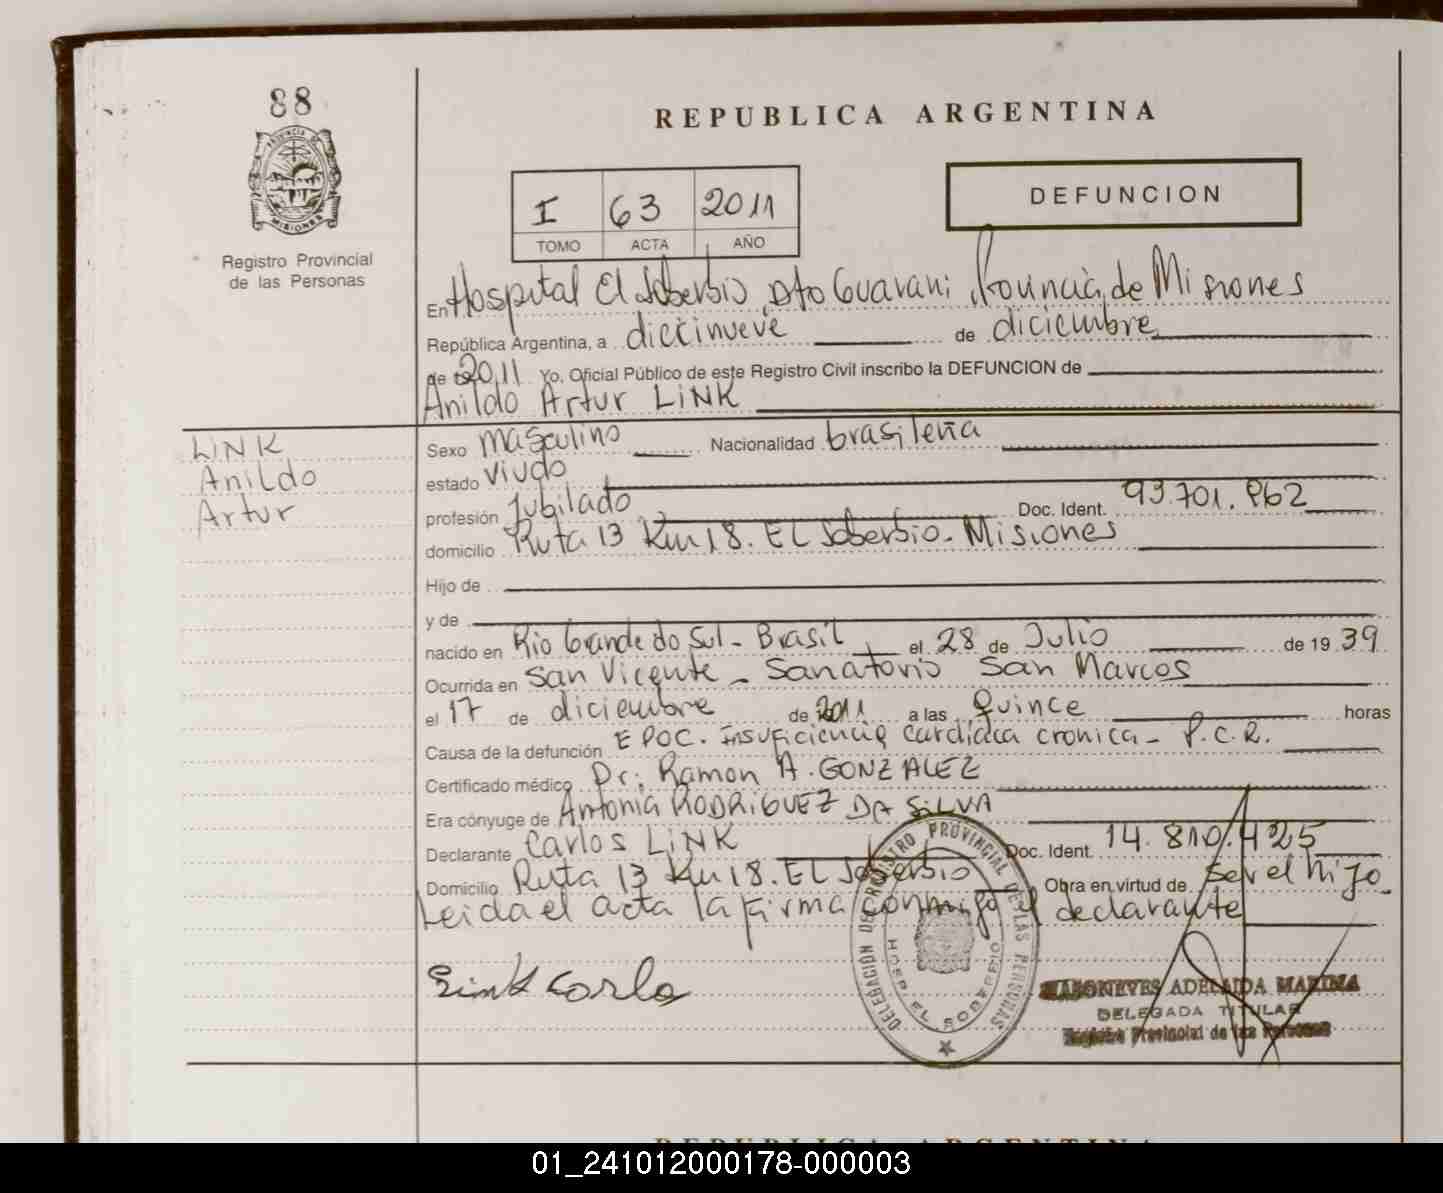 88
REPUBLICA ARGENTINA
DEFUNCION
I 63 2011
TOMO ACTA AÑO
Registro Provincial
de las Personas
En Hospital El Soberbio Dto Guarani, Provincia de Misiones
República Argentina, a diecinueve de diciembre
de 2011 Yo, Oficial Público de este Registro Civil inscribo la DEFUNCION de
Anildo Artur LiNK
LiNK
Anildo
Artur
Sexo masculino Nacionalidad brasileña
estado viudo
profesión Jubilado Doc. Ident. 93.701.962
domicilio Ruta 13 Km 18. EL Soberbio - Misiones
Hijo de
y de
nacido en Rio Grande do Sul - Brasil el 28 de Julio de 19 39
Ocurrida en San Vicente - Sanatorio San Marcos
el 17 de diciembre de 2011 a las Quince horas
Causa de la defunción EPOC. Insuficiencia cardiaca cronica - P.C.R.
Certificado médico Dr: Ramon A. GONZALEZ
Era cónyuge de Antonia RODRiGUEZ DA SiLVA
Declarante Carlos LiNK Doc. Ident. 14.810.425
Domicilio Ruta 13 Km 18. EL Soberbio Obra en virtud de ser el hijo
Leida el acta la firma conmigo el declarante
Link Carlo
DELEGACIÓN DEL REGISTRO PROVINCIAL DE LAS PERSONAS
HOSP. EL SOBERBIO
ADELAIDA MARINA
DELEGADA TITULAR
Registro Provincial de las Personas
REPUBLICA ARGENTINA
01_241012000178-000003